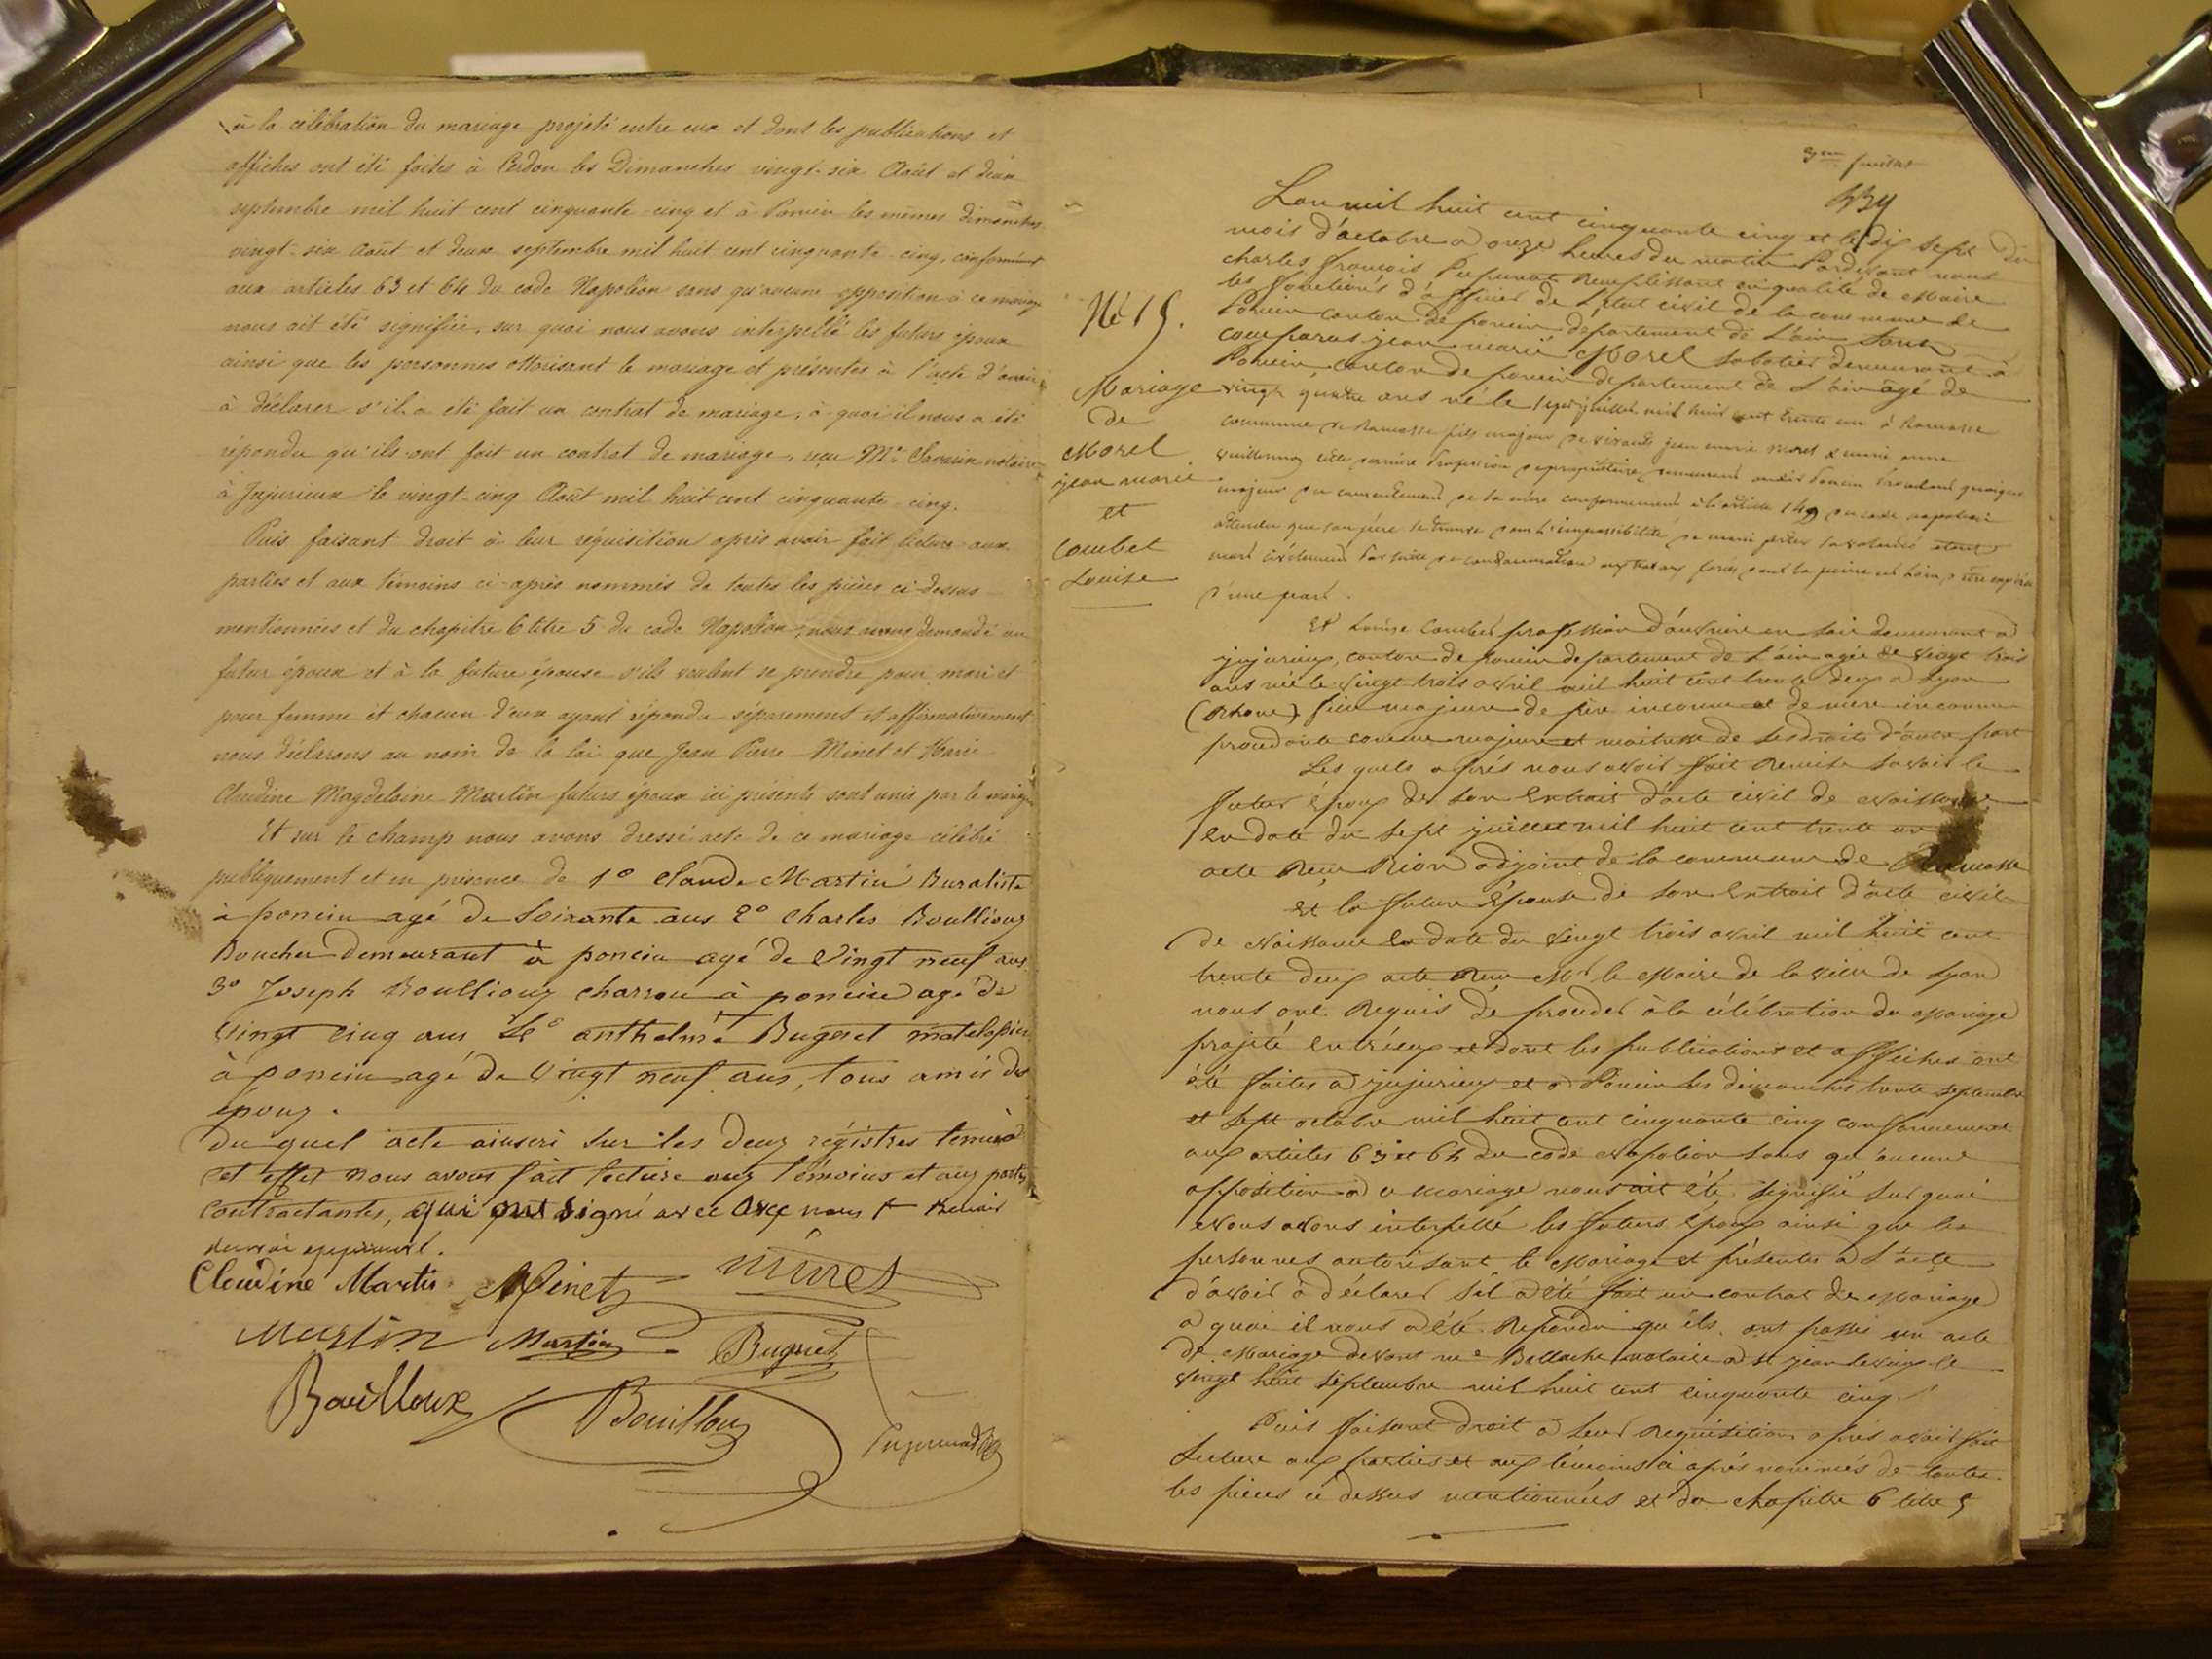 à la célébration du mariage projeté entre eux et dont les publications et
affiches ont été faites à Cerdon les Dimanches vingt-six Août et deux
septembre mil huit cent cinquante-cinq et à Poncin les mêmes dimanches
vingt-six Août et deux septembre mil huit cent cinquante-cinq, conformémt
aux articles 63 et 64 du code Napoléon sans qu'aucune opposition à ce mariage
nous ait été signifiée, sur quoi nous avons interpellé les futurs époux
ainsi que les personnes autorisant le mariage et présentes à l'acte d'avoir
à déclarer s'il a été fait un contrat de mariage, à quoi il nous a été
répondu qu'ils ont fait un contrat de mariage, reçu Me Savarin notaire
à Jujurieux le vingt-cinq Août mil huit cent cinquante-cinq.
Puis faisant droit à leur réquisition après avoir fait lecture aux
parties et aux témoins ci-après nommés de toutes les pièces ci-dessus
mentionnées et du chapitre 6 titre 5 du code Napoléon, nous avons demandé au
futur époux et à la future épouse s'ils veulent se prendre pour mari et
pour femme et chacun d'eux ayant répondu séparément et affirmativement
nous déclarons au nom de la loi que Jean Pierre Minet et Marie
Claudine Magdelaine Martin futurs époux ici présents sont unis par le mariage
Et sur le champ nous avons dressé acte de ce mariage célébré
publiquement et en présence de 1° Claude Martin Buraliste
à poncin agé de Soixante ans 2° Charles Boullioux
Boucher demeurant à poncin agé de Vingt neuf ans
3° Joseph Boullioux charron à poncin agé de
Vingt cinq ans 4° anthelme Buguet matelassier
à poncin agé de Vingt neuf ans, tous amis des
époux.
du quel acte ainscri sur les deux régistres tenus à
cet effet nous avons fait lecture aux témoins et aux parties
contractantes, qui ont signé avec avec nous
Claudine Martin Minet Minet
Martin Martin Buguet
Bouilloux Bouilloux
3me feuillet
L'an mil huit cent cinquante cinq et le dix sept du
mois d'octobre a onze heures du matin Pardevant nous
charles françois remplissant en qualité de Maire
les fonctions d'officier de l'état civil de la commune de
Poncin canton de poncin département de L'ain Sont
comparus jean marie Morel Sabotier demeurant à
Poncin canton de poncin département de L'ain agé de
vingt quatre ans né le sept juillet mil huit cent trente un à Ramasse
commune de Ramasse fils majeur de vivants jean marie Morel & marie anne
Guillermoz cette dernière Profession de propriétaire demeurant audit Poncin Procédant quoique
majeur du consentement de sa mère conformément à l'article 149 du code napoléon
attendu que son père se trouve dans l'impossibilité de manifester sa volonté étant
mort civilement par suite de condamnation aux travaux forcés dont la peine est loin d'être expirée
d'une part.
No 15.
Mariage
de
Morel
jean marie
et
Combet
Louise
Et Louise Combet profession d'ouvrière en soie demeurant à
jujurieux, canton de poncin departement de L'ain agée de vingt trois
ans née le vingt trois avril mil huit cent trente deux a Lyon
(Rhone) fille majeure de père inconnu et de mère inconnue
procédante comme majeure et maitresse de ses droits d'autre part
Les quels après nous avoir fait remise savoir le
futur époux de son Extrait d'acte civil de Naissance
en date du sept juillet mil huit cent trente un
acte Reçu Rion adjoint de la commune de Ramasse
Et la future Epouse de son Extrait d'acte civil
de Naissance en date du vingt trois avril mil huit cent
trente deux acte Reçu Mr le Maire de la ville de Lyon
nous ont Requis de procéder à la célébration du Mariage
projeté entr'eux et dont les publications et affiches ont
été faites a jujurieux et a Poncin les dimanches trente septembre
et sept octobre mil huit cent cinquante cinq conformement
aux articles 63 et 64 du code Napoléon sans qu'aucune
opposition a ce mariage nous ait été signifié sur quoi
Nous avons interpellé les futurs époux ainsi que les
personnes autorisant le Mariage et présentes a L'acte
d'avoir à déclarer s'il a été fait un contrat de Mariage
a quoi il nous a été Repondu qu'ils ont passé un acte
de Mariage devant me Ballache notaire a St jean levieux le
vingt huit septembre mil huit cent cinquante cinq.
Puis faisant droit a leur requisition après avoir fait
Lecture aux parties et aux témoins ci après nommés de toutes
les pièces ci dessus mentionnées et du chapitre 6 titre 5